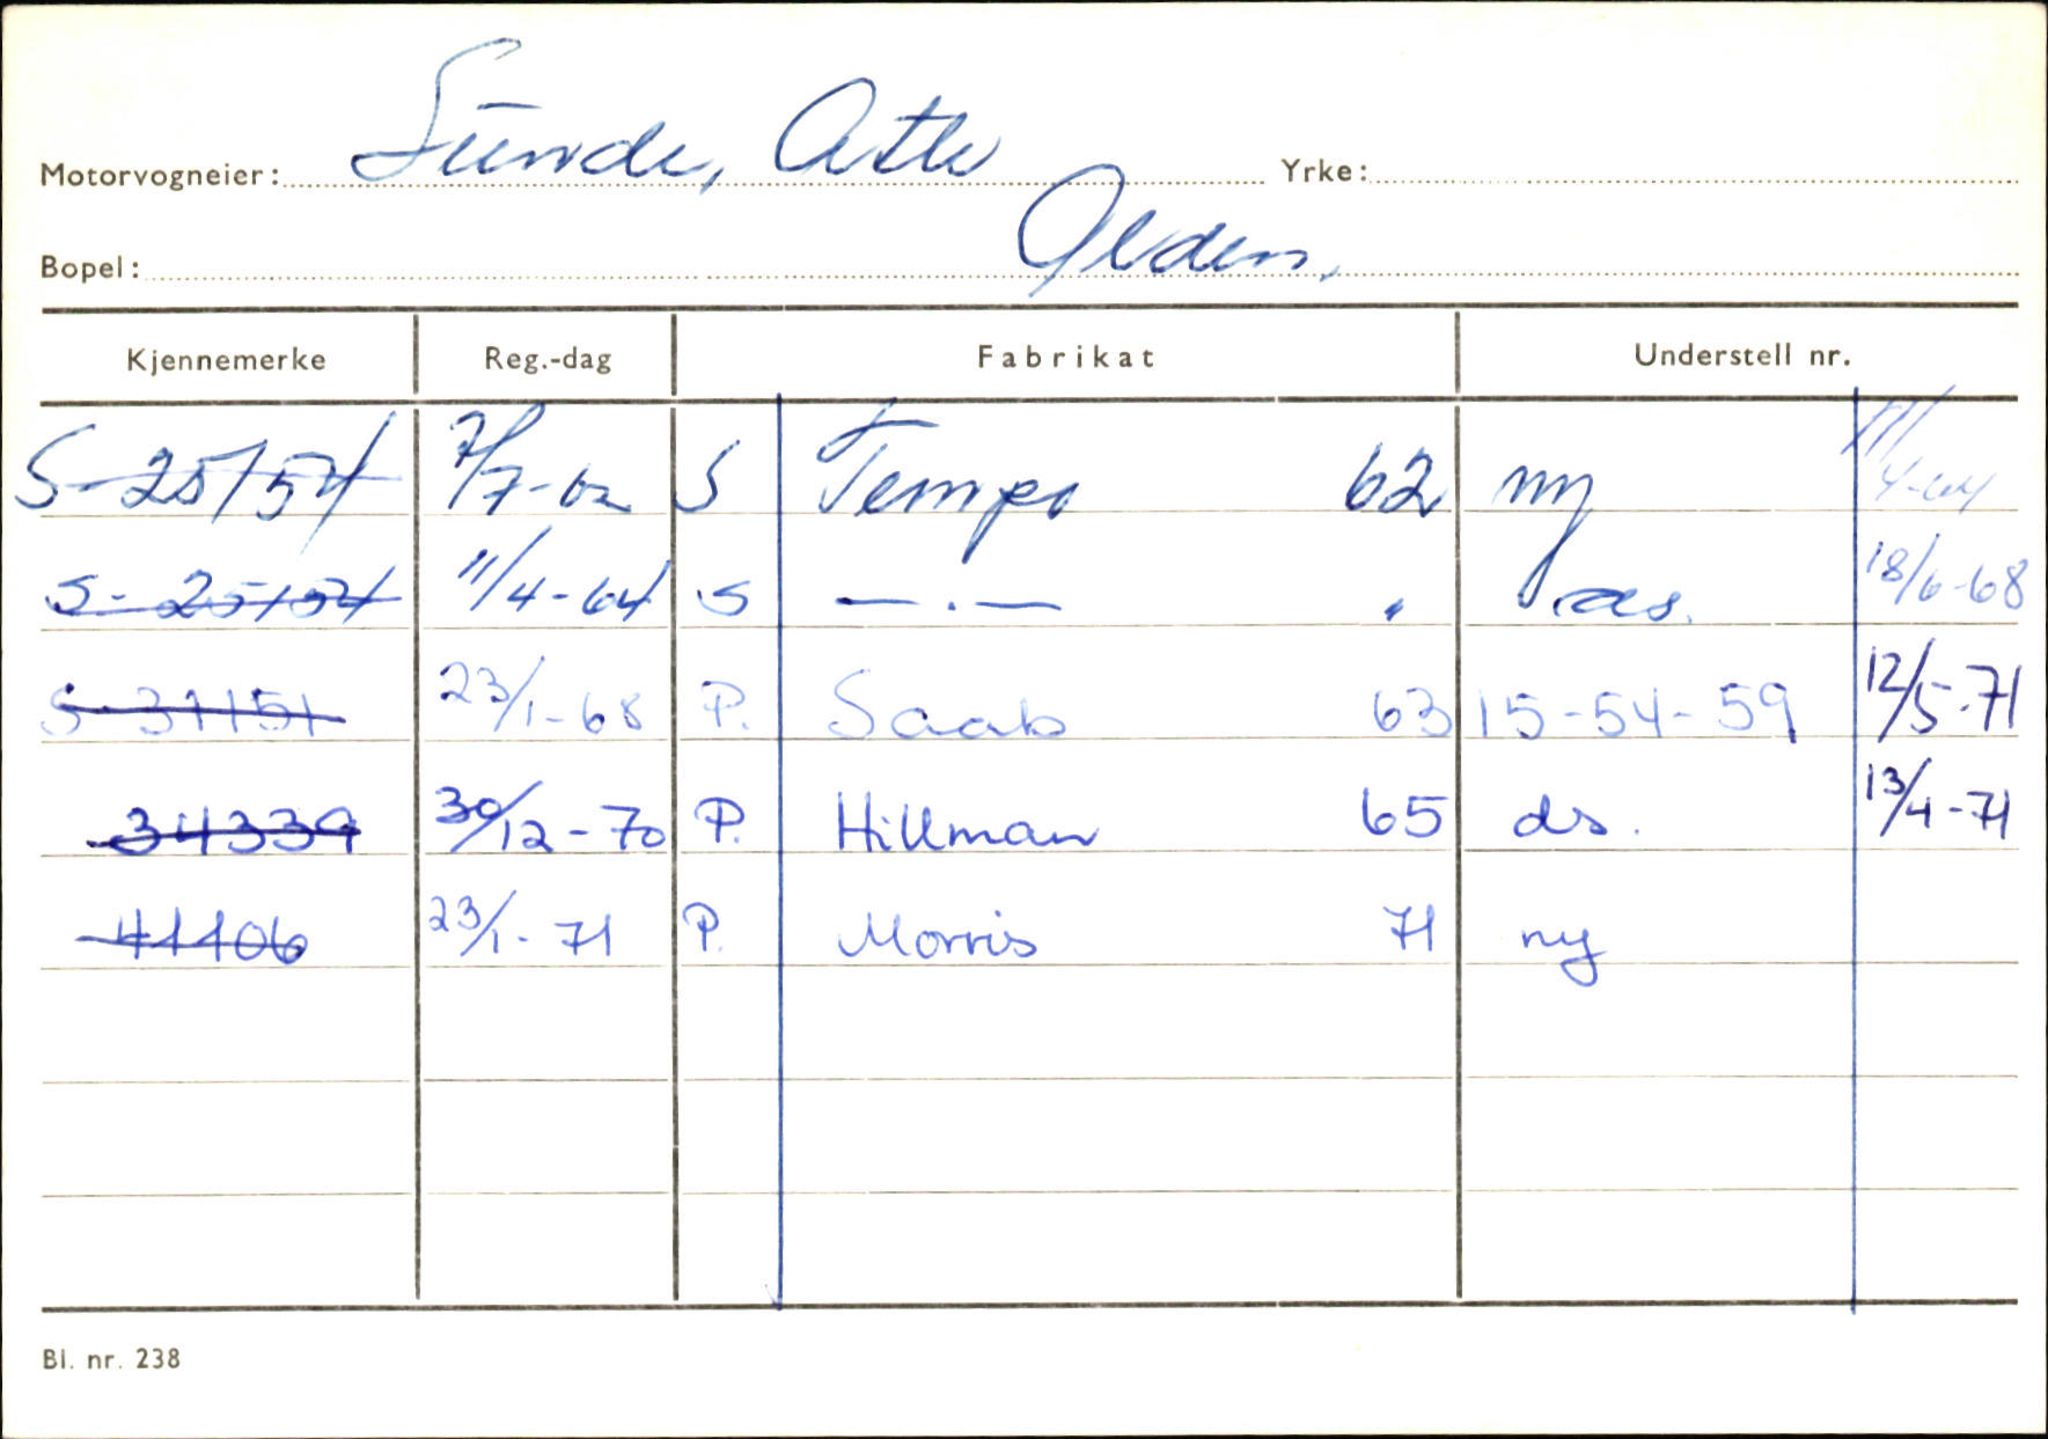 Motorvogneier: Sunde, Atle Yrke:
Bopel: Olden.
Kjennemerke Reg.-dag Fabrikat Understell nr.
S-25154 7/7-62 S Tempo 62 ny 11/4-64
S-25154 11/4-64 S —.— " ds. 18/6-68
S-31151 23/1-68 P. Saab 63 15-54-59 12/5-71
34339 30/12-70 P. Hillman 65 ds. 13/4-71
41106 23/1-71 P. Morris 71 ny
Bl. nr. 238